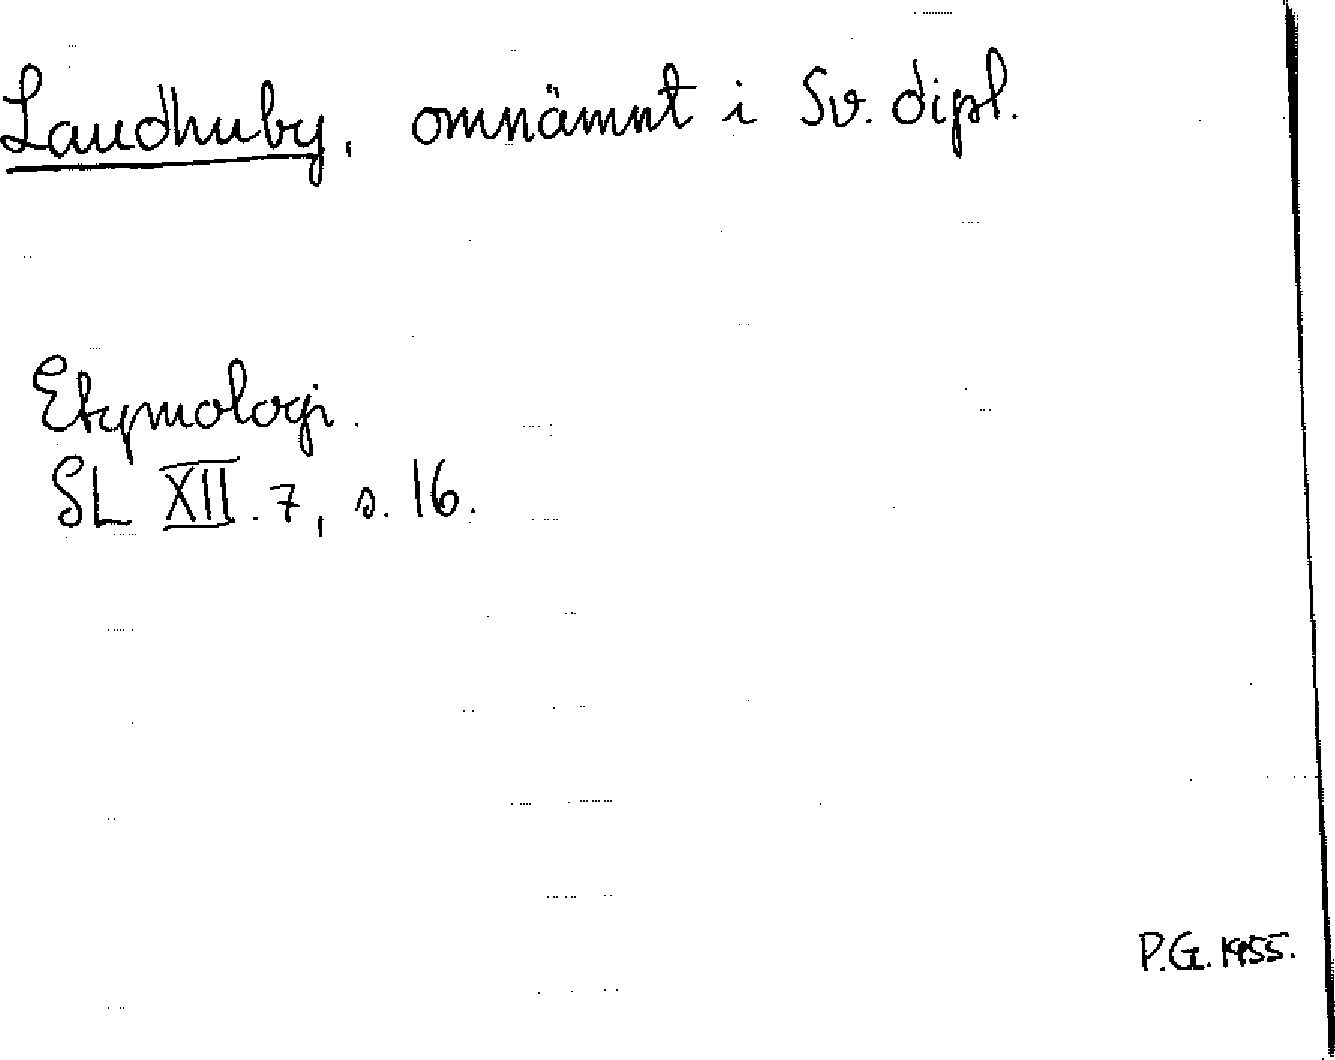 Laudhuby, omnämnt i Sv. dipl.
Etymologi.
SL XII.7, s. 16.
P.G. 1955.